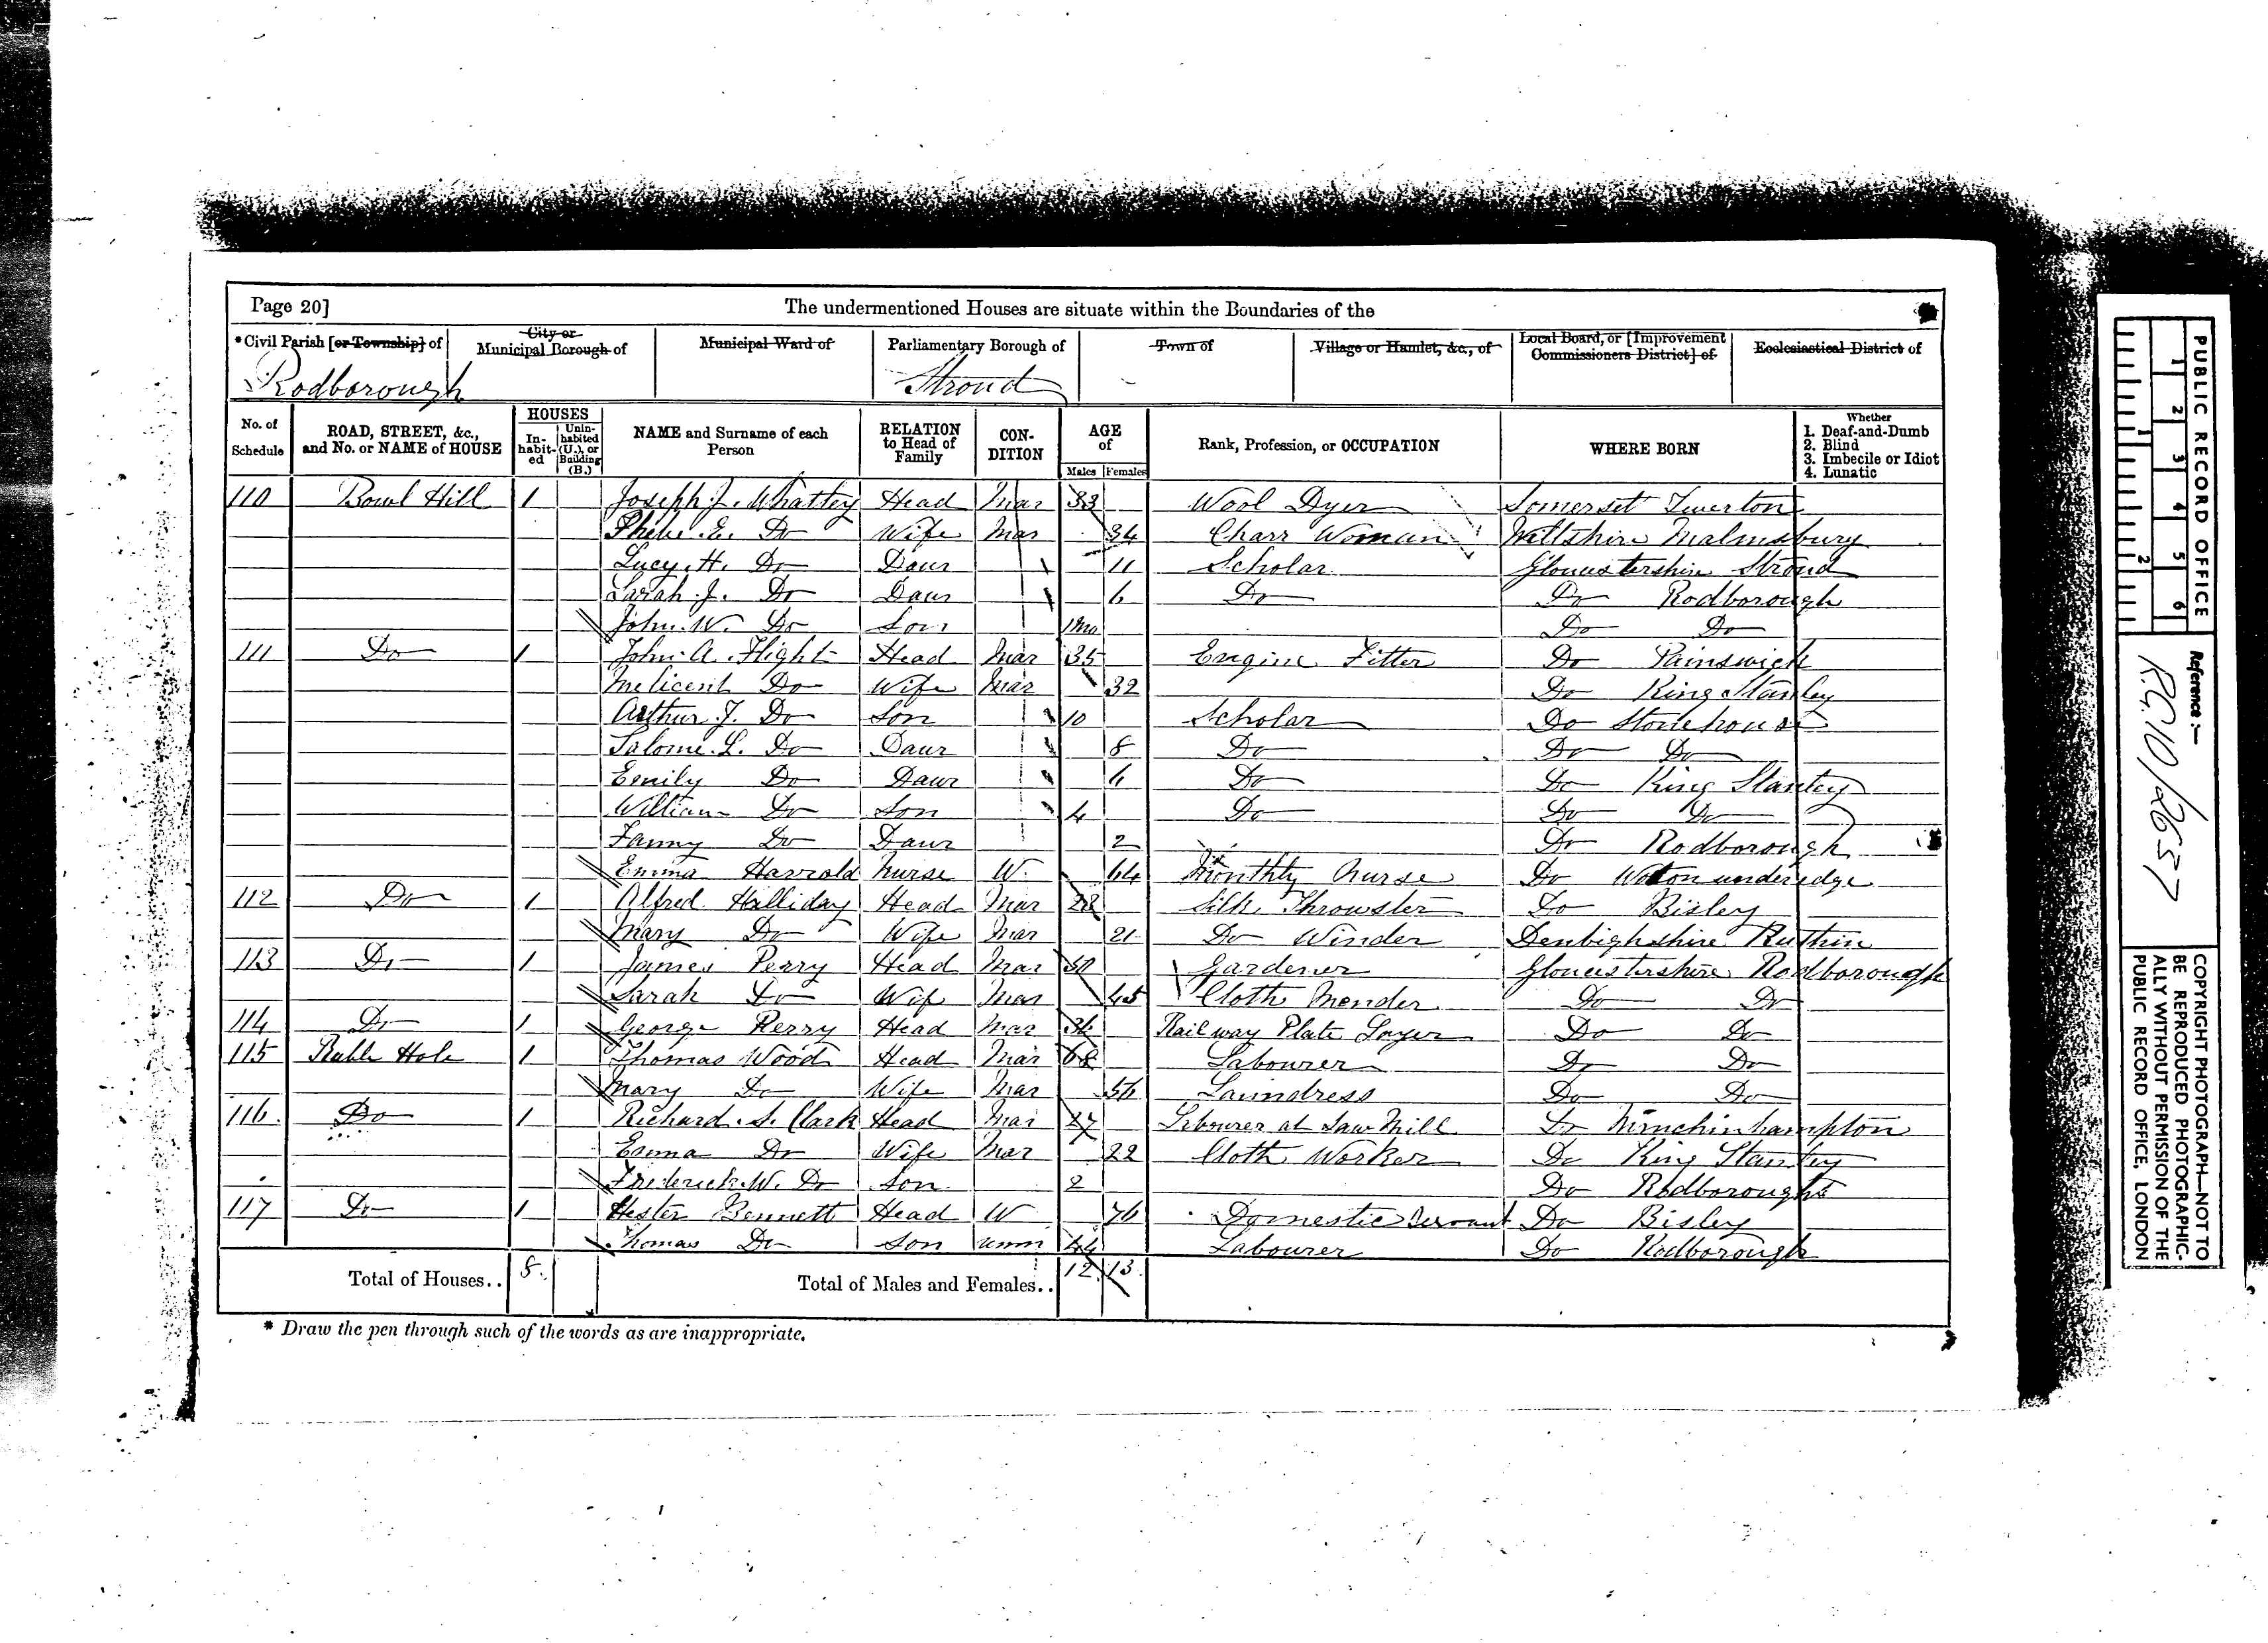 Page 20] The undermentioned Houses are situate within the Boundaries of the
*Civil Parish [or Township] of City or Municipal Borough of Municipal Ward of Parliamentary Borough of Town of Village or Hamlet, &c., of Local Board, or [Improvement Commissioners District] of Ecclesiastical District of
Rodborough Stroud
No. of Schedule ROAD, STREET, &c., and No. or NAME of HOUSE HOUSES Inhabited Uninhabited (U.), or Building (B.) NAME and Surname of each Person RELATION to Head of Family CONDITION AGE of Males Females Rank, Profession, or OCCUPATION WHERE BORN Whether 1. Deaf-and-Dumb 2. Blind 3. Imbecile or Idiot 4. Lunatic
110 Bowl Hill 1 Joseph J. Whatley Head Mar 33 Wool Dyer Somerset Twerton
Phebe E. Do Wife Mar 34 Charr Woman Wiltshire Malmsbury
Lucy H. Do Daur 11 Scholar Gloucestershire Stroud
Sarah J. Do Daur 6 Do Do Rodborough
John W. Do Son 1mo Do Do
111 Do 1 John A. Flight Head Mar 35 Engine Fitter Do Painswick
Melicent Do Wife Mar 32 Do King Stanley
Arthur J. Do Son 10 Scholar Do Stonehouse
Salome L. Do Daur 8 Do Do Do
Emily Do Daur 6 Do Do King Stanley
William Do Son 4 Do Do Do
Fanny Do Daur 2 Do Rodborough
Emma Harrold Nurse W. 64 Monthly Nurse Do Wotonunderedge
112 Do 1 Alfred Halliday Head Mar 28 Silk Throwster Do Bisley
Mary Do Wife Mar 21 Do Winder Denbighshire Ruthin
113 Do 1 James Perry Head Mar Gardener Gloucestershire Rodborough
Sarah Do Wif Mar 45 Cloth Mender Do Do
114 Do 1 George Perry Head Mar 36 Railway Plate Layer Do Do
115 Hole 1 Thomas Wood Head Mar 68 Labourer Do Do
Mary Do Wife Mar 56 Laundress Do Do
116. Do 1 Richard S. Clark Head Mar 27 Labourer at Saw Mill Do Minchinhampton
Emma Do Wife Mar 22 Cloth Worker Do King Stanley
Frederick W. Do Son 2 Do Rodborough
117 Do 1 Hester Bennett Head W 76 Domestic Servant Do Bisley
Thomas Do Son unm 44 Labourer Do Rodborough
Total of Houses.. 8. Total of Males and Females.. 12 13
* Draw the pen through such of the words as are inappropriate.
PUBLIC RECORD OFFICE
1 2 3 4 5 6
1 2
Reference:—
R.G.10/2657
COPYRIGHT PHOTOGRAPH—NOT TO
BE REPRODUCED PHOTOGRAPHIC-
ALLY WITHOUT PERMISSION OF THE
PUBLIC RECORD OFFICE, LONDON